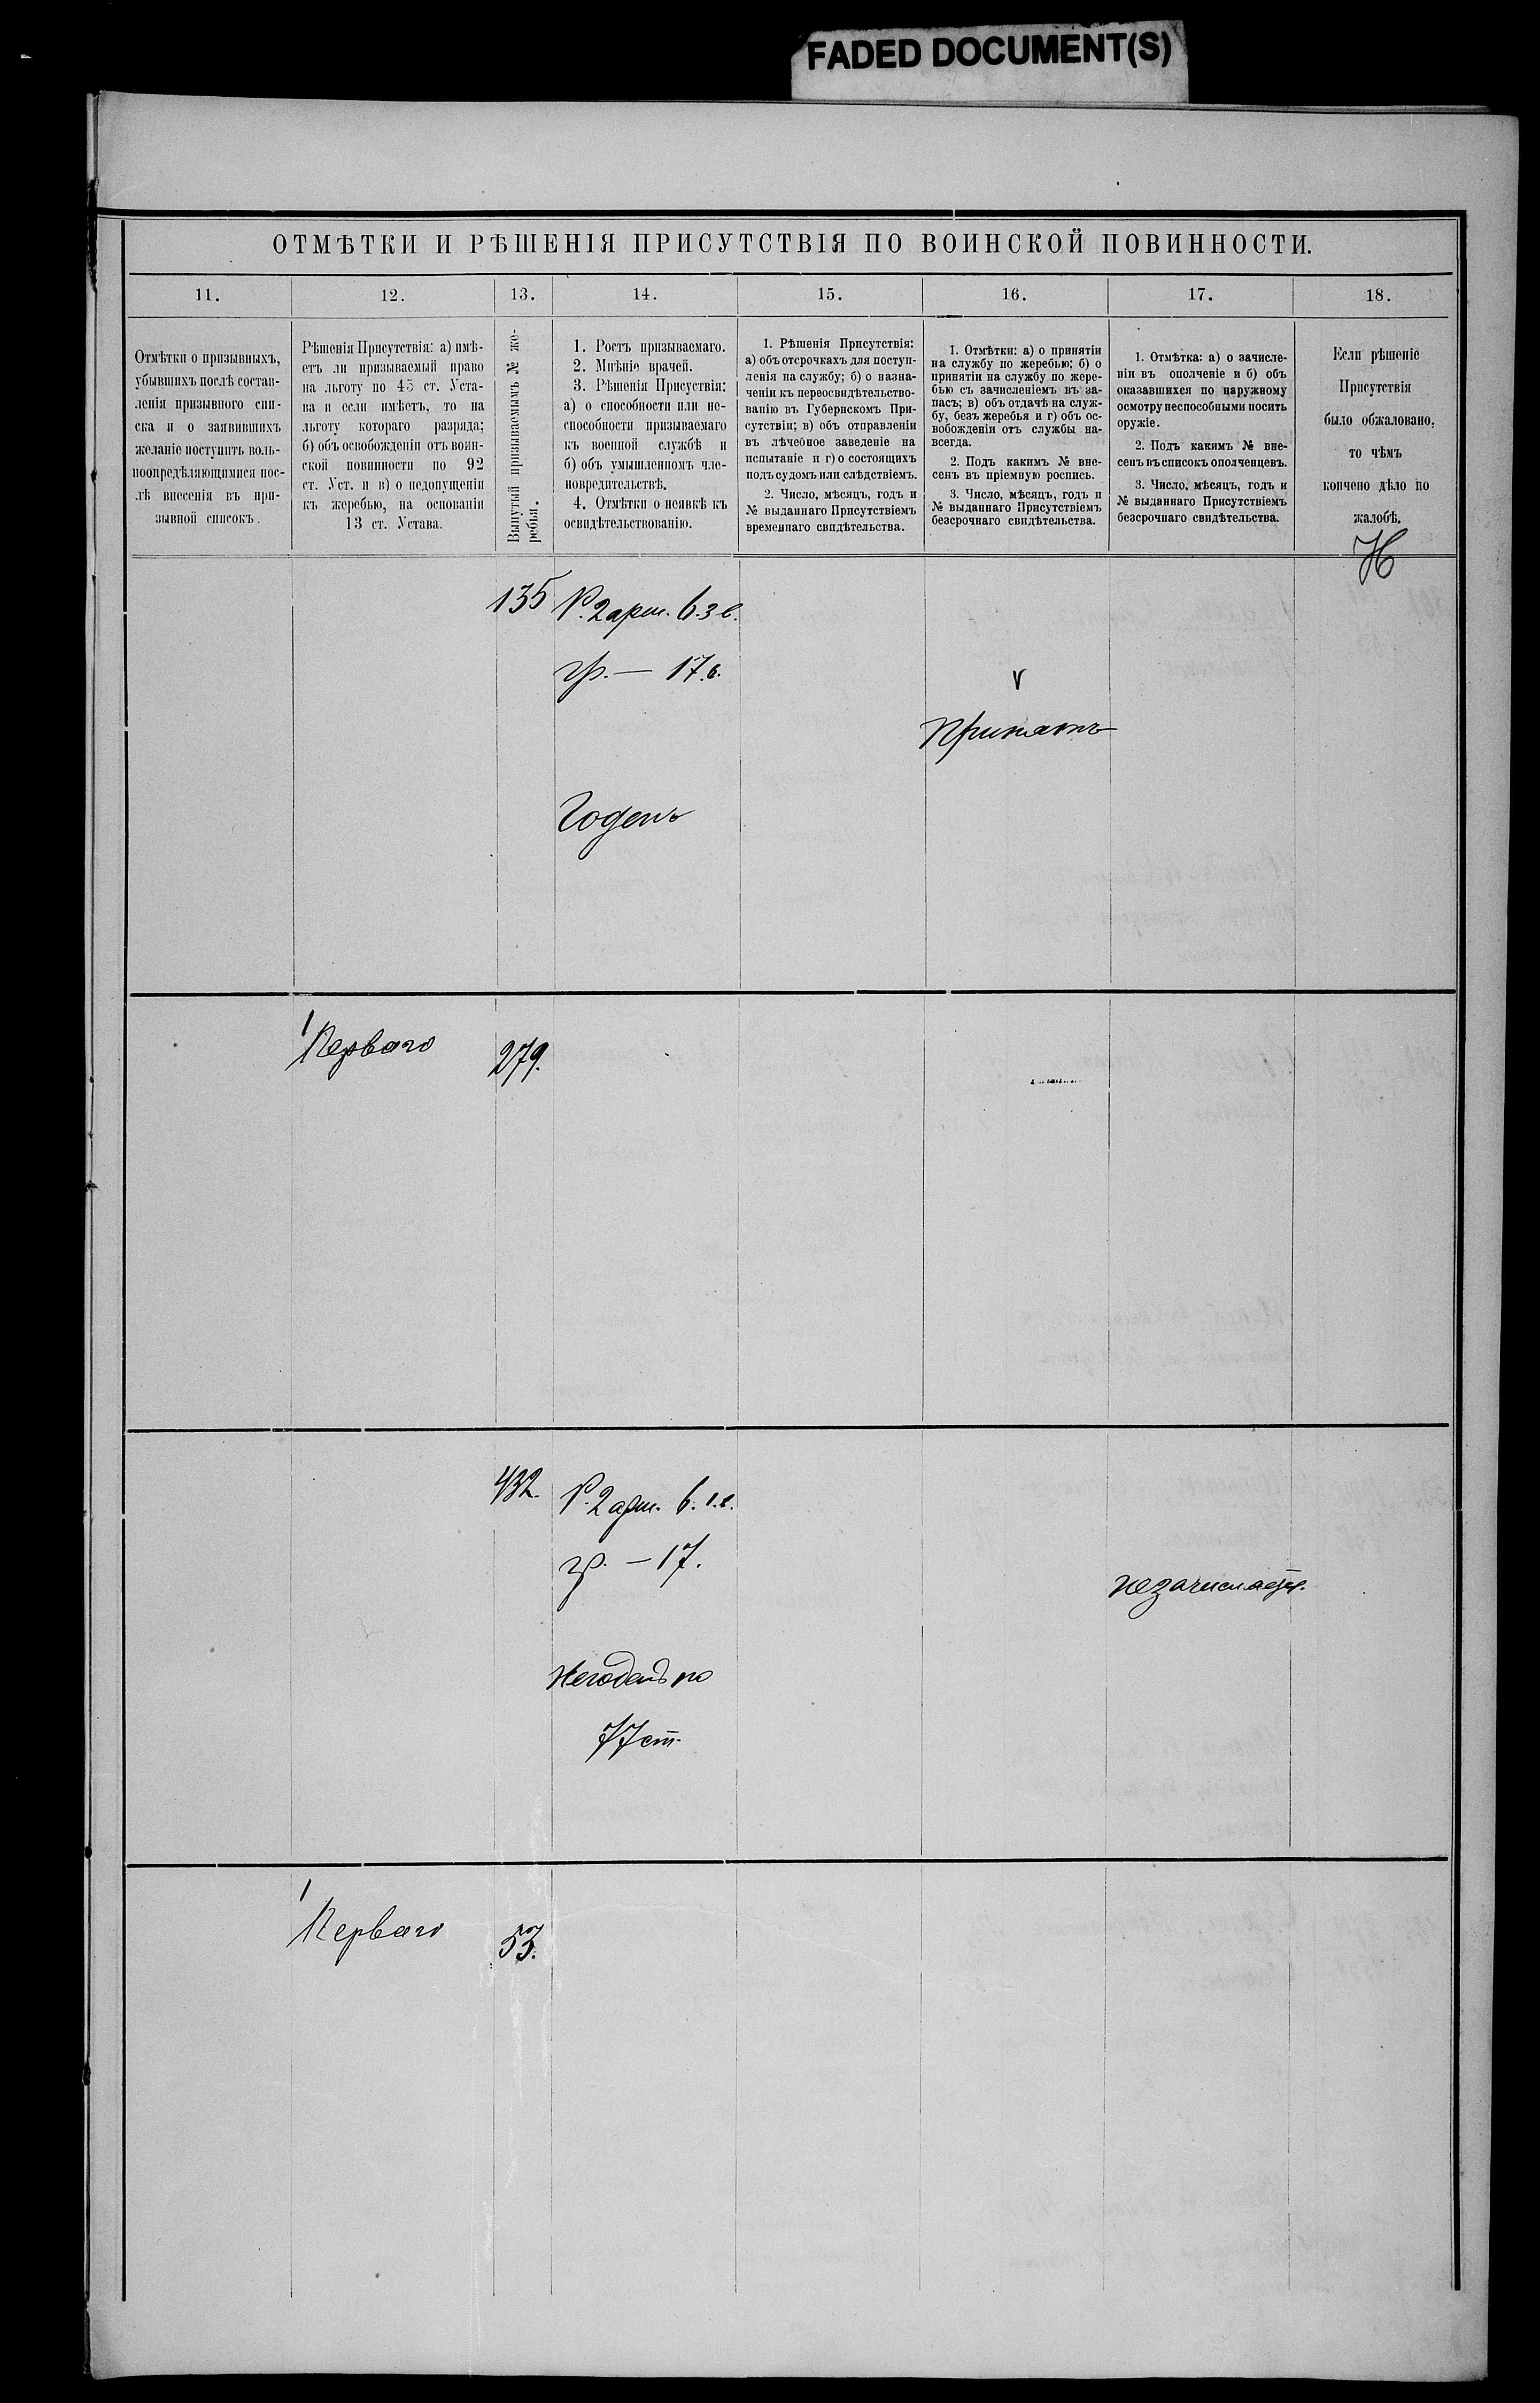 FADED DOCUMENT(S)
ОТМѢТКИ И РѢШЕНІЯ ПРИСУТСТВІЯ ПО ВОИНСКОЙ ПОВИННОСТИ.
11.
12.
13.
14.
15.
16.
17.
18.
Отмѣтки о призывныхъ,
убывшихъ послѣ состав-
ленія призывного спи-
ска и о заявившихъ
желаніе поступить воль-
ноопредѣляющимися пос-
лѣ внесенія въ при-
зывной списокъ.
Рѣшенія Присутствія: а) имѣ-
етъ ли призываемый право
на льготу по 45 ст. Уста-
ва и если имѣетъ, то на
льготу котораго разряда;
б) объ освобожденіи отъ воин-
ской повинности по 92
ст. Уст. и в) о недопущеніи
къ жеребью, на основаніи
13 ст. Устава.
Вынутый призываемымъ № же-
ребья.
1. Ростъ призываемаго.
2. Мнѣніе врачей.
3. Рѣшенія Присуствія:
а) о способности или не-
способности призываемаго
къ военной службѣ и
б) объ умышленномъ чле-
новредительствѣ.
4. Отмѣтки о неявкѣ къ
освидѣтельствованію.
1. Рѣшенія Присутствія:
а) объ отсрочкахъ для поступ-
ленія на службу; б) о назна-
ченіи къ переосвидѣтельство-
ванію въ Губернскомъ При-
сутствіи; в) объ отправленіи
въ лѣчебное заведеніе на
испытаніе и г) о состоящихъ
подъ судомъ или слѣдствіемъ.
2. Число, мѣсяцъ, годъ и
№ выданнаго Присутствіемъ
временнаго свидѣтельства.
1. Отмѣтки: а) о принятіи
на службу по жеребью; б) о
принятіи на службу по жере-
бью съ зачисленіемъ въ за-
пасъ; в) объ отдачѣ на служ-
бу, безъ жеребья и г) объ ос-
вобожденіи отъ службы на-
всегда.
2. Подъ какимъ № вне-
сенъ въ пріемную роспись.
3. Число, мѣсяцъ, годъ и
№ выданнаго Присутствіемъ
безсрочнаго свидѣтельства.
1. Отмѣтка: а) о зачисле-
ніи въ ополченіе и б) объ
оказавшихся по наружному
осмотру неспособными носить
оружіе.
2. Подъ какимъ № вне-
сенъ въ списокъ ополченцевъ.
3. Число, мѣсяцъ, годъ и
№ выданнаго Присутствіемъ
безсрочнаго свидѣтельства.
Если рѣшеніе
Присутствія
было обжаловано,
то чѣмъ
кончено дѣло по
жалобѣ.
Н
135
Р. 2 арш. 6. 3 в.
гр. — 17. в.
Годенъ
v
Принятъ
1
Перваго
279.
432.
Р. 2 арш. 6. 1. в.
гр. — 17.
Негоденъ по
77 ст.
незачисляется.
1
Перваго
53.